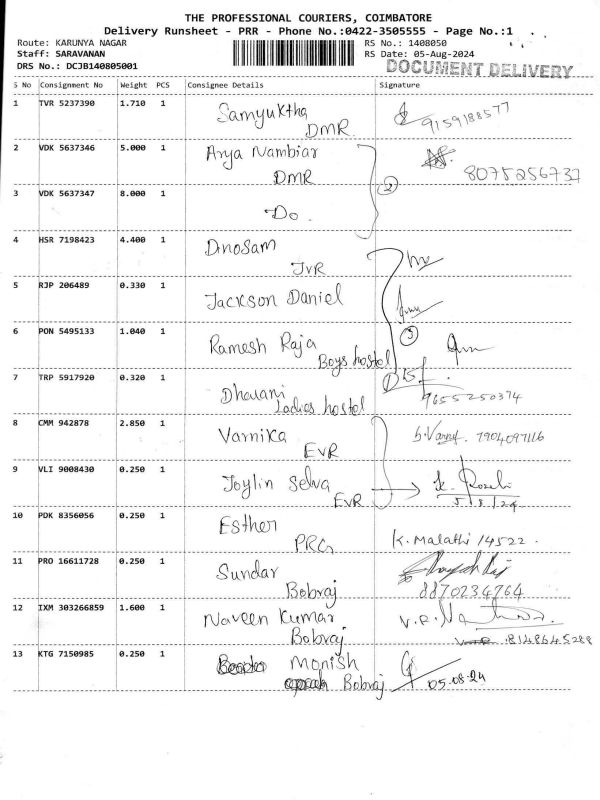 THE PROFESSIONAL COURIERS, COIMBATORE
Delivery Runsheet - PRR - Phone No.:0422-3505555 - Page No.:1
Route: KARUNYA NAGAR RS No.: 1408050
Staff: SARAVANAN RS Date: 05-Aug-2024
DRS No.: DCJB140805001 DOCUMENT DELIVERY
S No Consignment No Weight PCS Consignee Details Signature
1 TVR 5237390 1.710 1 Samyuktha
DMR 9159188577
2 VDK 5637346 5.000 1 Arya Nambiar
DMR 8075256737
3 VDK 5637347 8.000 1 Do. 2
4 HSR 7198423 4.400 1 Dinosam
JVR
5 RJP 206489 0.330 1 Jackson Daniel
6 PON 5495133 1.040 1 Ramesh Raja 3
Boys hostel
7 TRP 5917920 0.320 1 Dhavani 1
Ladies hostel 9655250374
8 CMM 942878 2.850 1 Varnika 7904097116
EVR
9 VLI 9008430 0.250 1 Joylin Selva
EVR 5/8/24
10 PDK 8356056 0.250 1 Esther
PRG K. Malathi 14522.
11 PRO 16611728 0.250 1 Sundar
Bobraj 8870234764
12 IXM 303266859 1.600 1 Naveen Kumar
Bobraj 8148645288
13 KTG 7150985 0.250 1 Monish
Bobraj 05.08.24